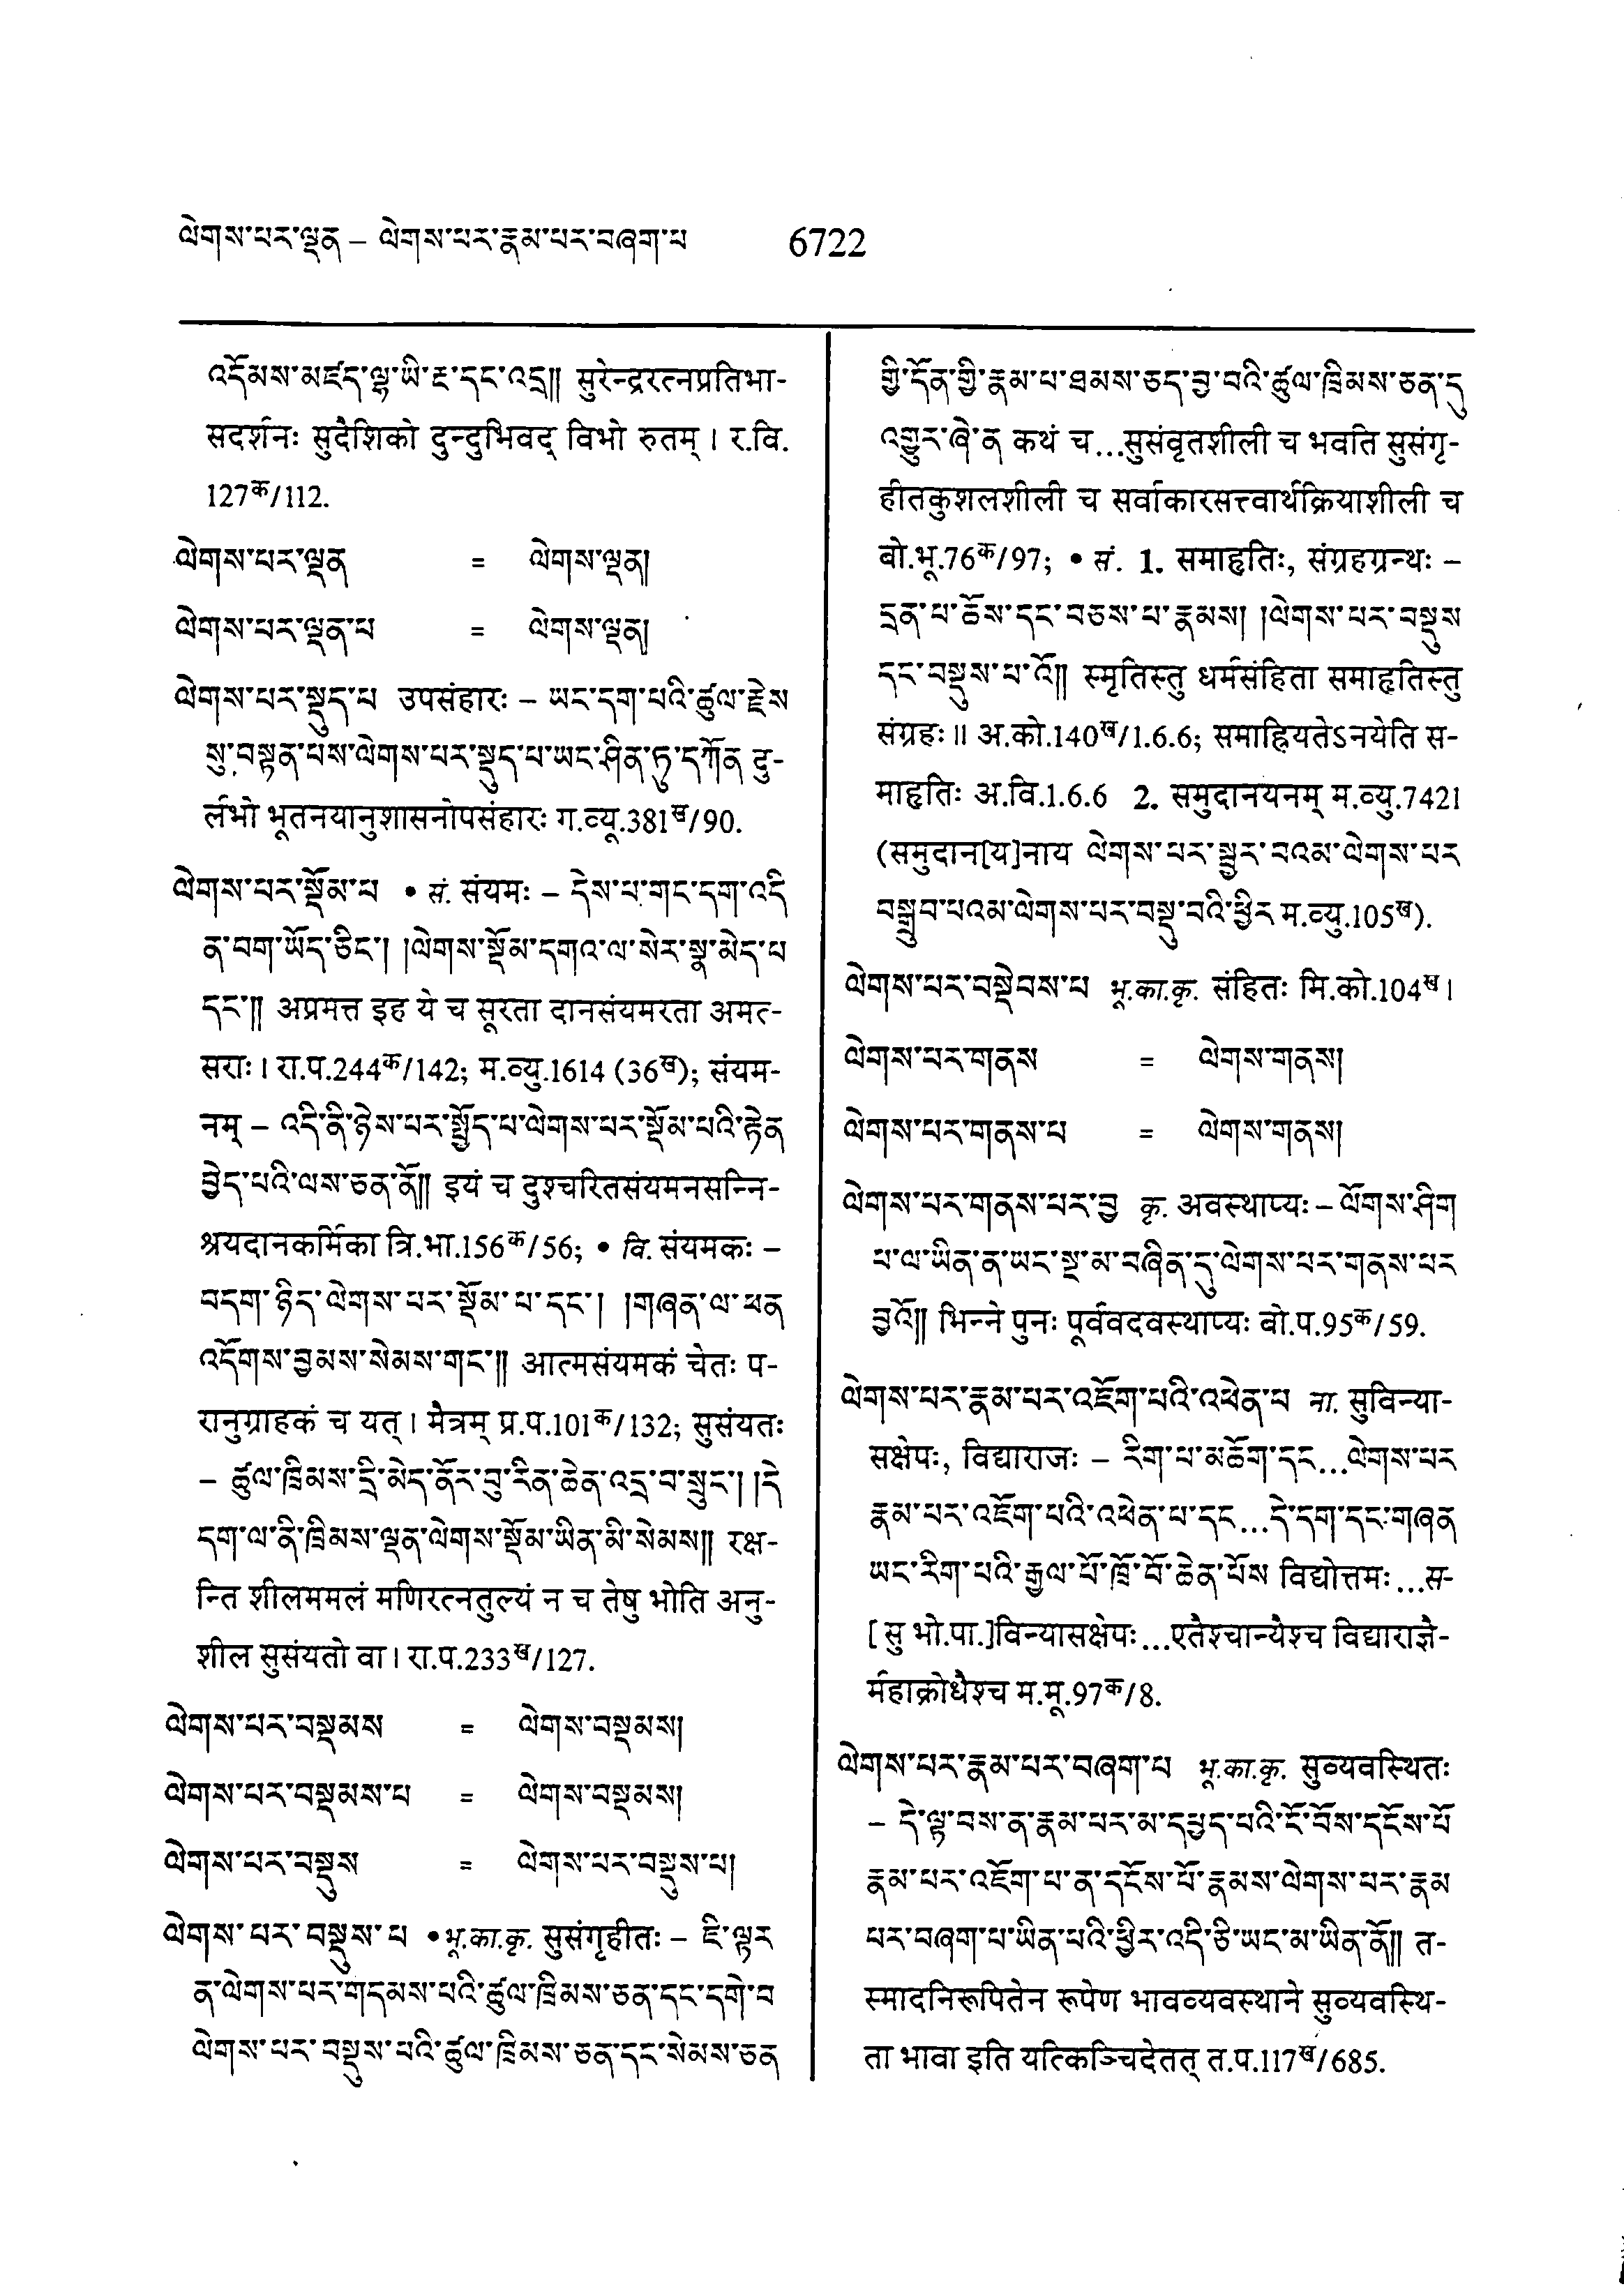 ལེགས་པར་ལྡན – ལེགས་པར་རྣམ་པར་བཞག་པ 6722
འདོམས་མཛད་ལྷ་ཡི་རྔ་དང་འདྲ།། सुरेन्द्ररत्नप्रतिभा-
सदर्शनः सुदैशिको दुन्दुभिवद् विभो रुतम् । र.वि.
127क/112.
ལེགས་པར་ལྡན = ལེགས་ལྡན།
ལེགས་པར་ལྡན་པ = ལེགས་ལྡན།
ལེགས་པར་སྡུད་པ उपसंहारः – ཡང་དག་པའི་ཚུལ་རྗེས
སུ་བསྟན་པས་ལེགས་པར་སྡུད་པ་ཡང་ཤིན་ཏུ་དཀོན दु-
र्लभो भूतनयानुशासनोपसंहारः ग.व्यू.381ख/90.
ལེགས་པར་སྡོམ་པ • सं. संयमः – དེས་པ་གང་དག་འདི
ན་བག་ཡོད་ཅིང་། །ལེགས་སྡོམ་དགའ་ལ་སེར་སྣ་མེད་པ
དང་།། अप्रमत्त इह ये च सूरता दानसंयमरता अमत्-
सराः । रा.प.244क/142; म.व्यु.1614 (36ख); संयम-
नम् – འདི་ནི་ཉེས་པར་སྤྱོད་པ་ལེགས་པར་སྡོམ་པའི་རྟེན
བྱེད་པའི་ལས་ཅན་ནོ།། इयं च दुश्चरितसंयमनसन्नि-
श्रयदानकर्मिका त्रि.भा.156क/56; • वि. संयमकः –
བདག་ཉིད་ལེགས་པར་སྡོམ་པ་དང་། །གཞན་ལ་ཕན
འདོགས་བྱམས་སེམས་གང་།། आत्मसंयमकं चेतः प-
रानुग्राहकं च यत् । मैत्रम् प्र.प.101क/132; सुसंयतः
– ཚུལ་ཁྲིམས་དྲི་མེད་ནོར་བུ་རིན་ཆེན་འདྲ་བ་སྲུང་། །དེ
དག་ལ་ནི་ཁྲིམས་ལྡན་ལེགས་སྡོམ་ཡིན་མི་སེམས།། रक्ष-
न्ति शीलममलं मणिरत्नतुल्यं न च तेषु भोति अनु-
शील सुसंयतो वा । रा.प.233ख/127.
ལེགས་པར་བསྡམས = ལེགས་བསྡམས།
ལེགས་པར་བསྡམས་པ = ལེགས་བསྡམས།
ལེགས་པར་བསྡུས = ལེགས་པར་བསྡུས་པ།
ལེགས་པར་བསྡུས་པ • भू.का.कृ. सुसंगृहीतः – ཇི་ལྟར
ན་ལེགས་པར་གདམས་པའི་ཚུལ་ཁྲིམས་ཅན་དང་དགེ་བ
ལེགས་པར་བསྡུས་པའི་ཚུལ་ཁྲིམས་ཅན་དང་སེམས་ཅན
གྱི་དོན་གྱི་རྣམ་པ་ཐམས་ཅད་བྱ་བའི་ཚུལ་ཁྲིམས་ཅན་དུ
འགྱུར་ཞེ་ན कथं च...सुसंवृतशीली च भवति सुसंगृ-
हीतकुशलशीली च सर्वाकारसत्त्वार्थक्रियाशीली च
बो.भू.76क/97; • सं. 1. समाहृतिः, संग्रहग्रन्थः –
དྲན་པ་ཆོས་དང་བཅས་པ་རྣམས། །ལེགས་པར་བསྡུས
དང་བསྡུས་པ་འོ།། स्मृतिस्तु धर्मसंहिता समाहृतिस्तु
संग्रहः ॥ अ.को.140ख/1.6.6; समाह्रियतेऽनयेति स-
माहृतिः अ.वि.1.6.6 2. समुदानयनम् म.व्यु.7421
(समुदान[य]नाय ལེགས་པར་སྦྱར་བའམ་ལེགས་པར
བསྒྲུབ་པའམ་ལེགས་པར་བསྡུ་བའི་ཕྱིར म.व्यु.105ख).
ལེགས་པར་བསྡེབས་པ भू.का.कृ. संहितः मि.को.104ख ।
ལེགས་པར་གནས = ལེགས་གནས།
ལེགས་པར་གནས་པ = ལེགས་གནས།
ལེགས་པར་གནས་པར་བྱ कृ. अवस्थाप्यः – ལོགས་ཤིག
པ་ལ་ཡིན་ན་ཡང་སྔ་མ་བཞིན་དུ་ལེགས་པར་གནས་པར
བྱའོ།། भिन्ने पुनः पूर्ववदवस्थाप्यः बो.प.95क/59.
ལེགས་པར་རྣམ་པར་འཇོག་པའི་འཕེན་པ ना. सुविन्या-
सक्षेपः, विद्याराजः – རིག་པ་མཆོག་དང...ལེགས་པར
རྣམ་པར་འཇོག་པའི་འཕེན་པ་དང...དེ་དག་དང་གཞན
ཡང་རིག་པའི་རྒྱལ་པོ་ཁྲོ་བོ་ཆེན་པོས विद्योत्तमः...स-
[सु भो.पा.]विन्यासक्षेपः...एतैश्चान्यैश्च विद्याराज्ञै-
र्महाक्रोधैश्च म.मू.97क/8.
ལེགས་པར་རྣམ་པར་བཞག་པ भू.का.कृ. सुव्यवस्थितः
– དེ་ལྟ་བས་ན་རྣམ་པར་མ་དཔྱད་པའི་ངོ་བོས་དངོས་པོ
རྣམ་པར་འཇོག་པ་ན་དངོས་པོ་རྣམས་ལེགས་པར་རྣམ
པར་བཞག་པ་ཡིན་པའི་ཕྱིར་འདི་ཅི་ཡང་མ་ཡིན་ནོ།། त-
स्मादनिरूपितेन रूपेण भावव्यवस्थाने सुव्यवस्थि-
ता भावा इति यत्किञ्चिदेतत् त.प.117ख/685.